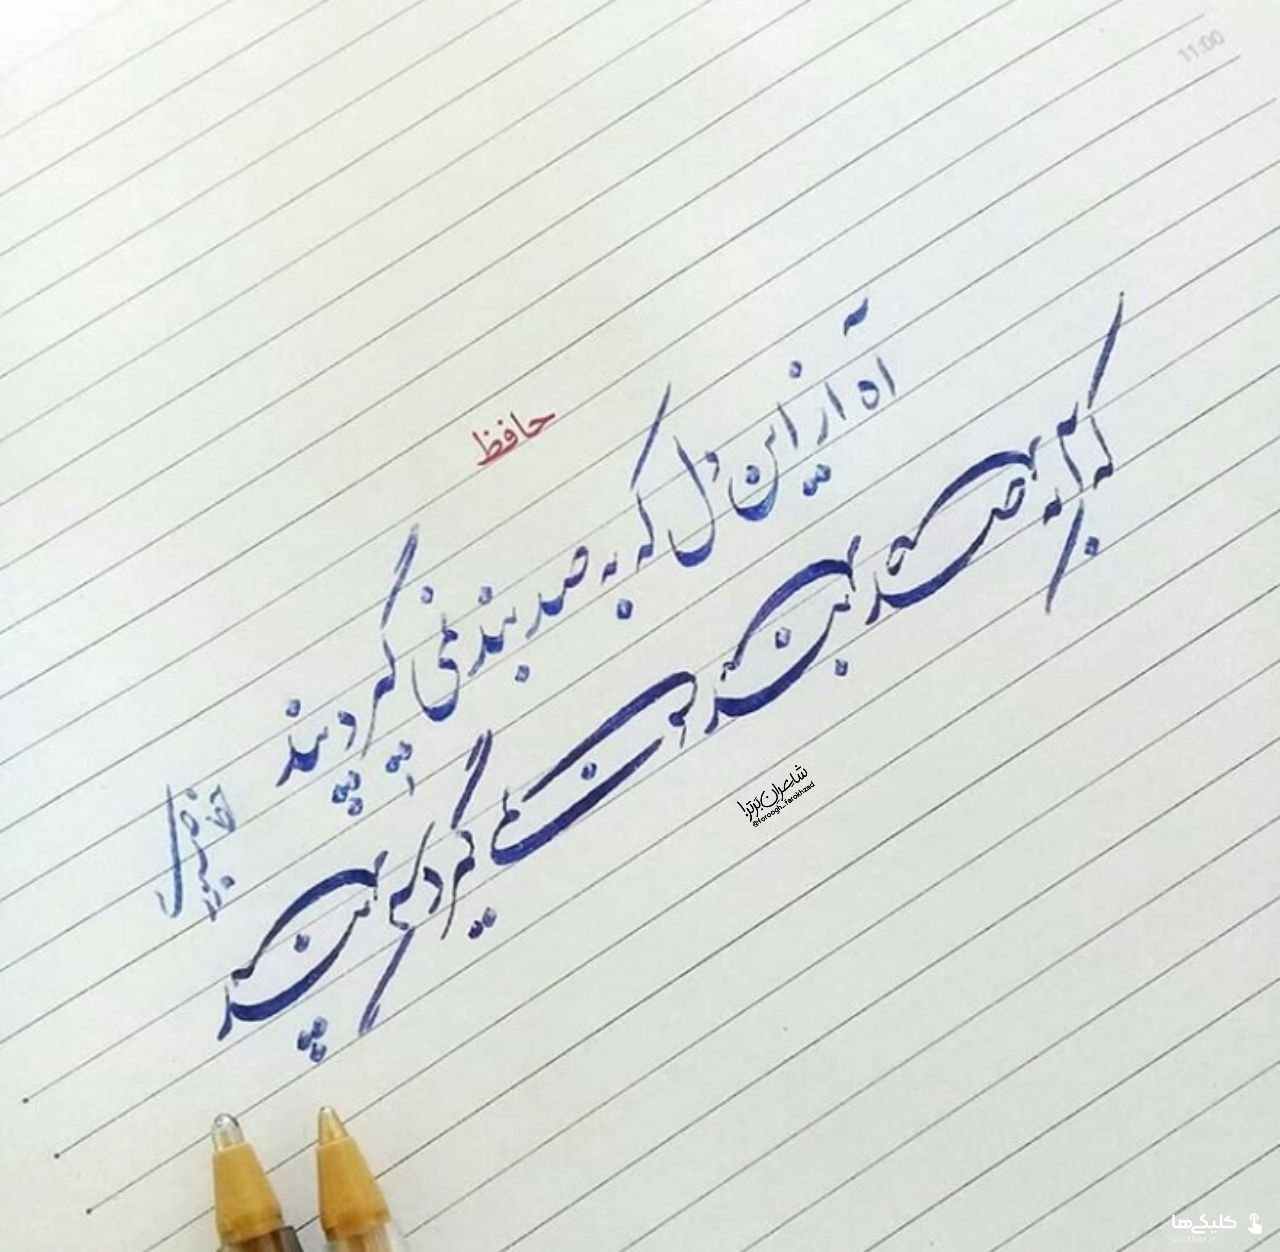 11:00
حافظ
آه از این دل که به صد بند نمی گیرد پند
که به صد بند نمی گیرد پند
شاعران برتر
@foroogh_farokhzad
کلیک‌ها
clickbax.ir